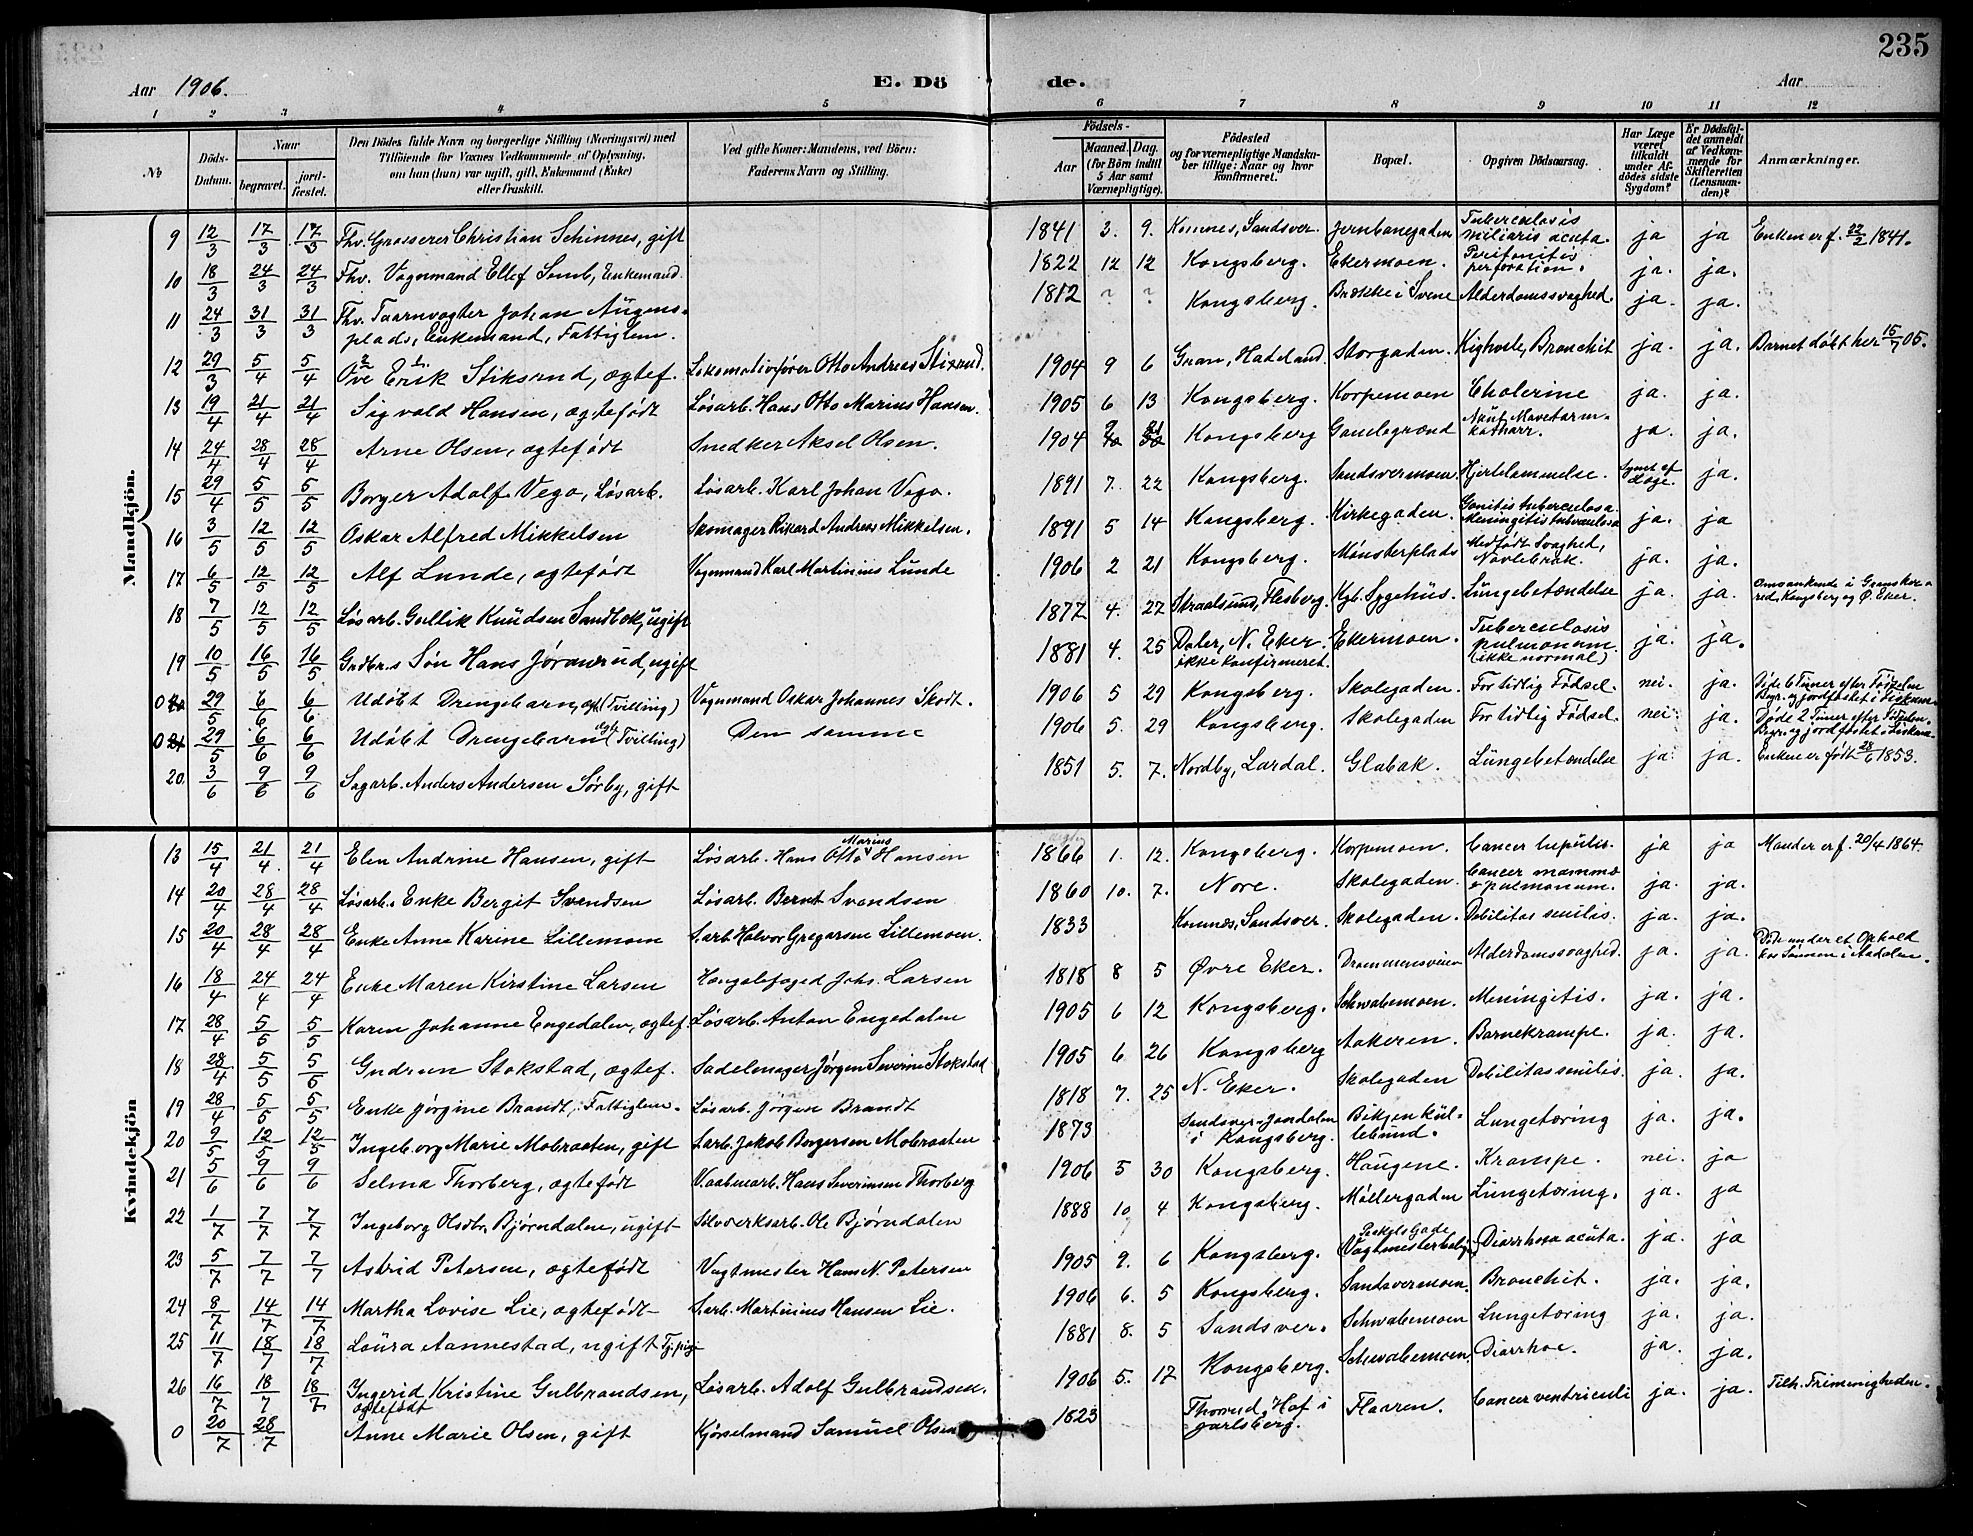 235
Aar 1906.
E. Dö
de.
Aar
1 2 3 4 5 6 7 8 9 10 11 12
No
Döds-Datum.
Naar
begravet.
jordfæstet.
Den Dödes fulde Navn og borgerlige Stilling (Næringsvei) med
Tilföiende for Voxnes Vedkommende af Oplysning,
om han (hun) var ugift, gift, Enkemand (Enke)
eller fraskilt.
Ved gifte Koner: Mandens, ved Börn:
Faderens Navn og Stilling.
Födsels-
Aar
Maaned. Dag.
(for Börn indtil 5 Aar samt Værnepligtige).
Födested
og for værnepligtige Mandskaber tillige: Naar og hvor konfirmeret.
Bopæl.
Opgiven Dödsaarsag.
Har Læge været tilkaldt under Afdödes sidste Sygdom?
Er Dödsfaldet anmeldt af Vedkommende for Skifteretten (Lensmanden)?
Anmærkninger.
Mandkjön.
9 12/3 17/3 17/3 Fhv. Grosserer Christian Schinnes, gift 1841 3. 9. Komnes, Sandsver. Jernbanegaden Tuberculosis miliaris acuta. ja ja Enken er f. 22/2 1841.
10 18/3 24/3 24/3 Fhv. Vognmand Ellef Semb, Enkemand. 1822 12 12 Kongsberg. Ekermoen. Peritonitis perforation. ja. ja.
11 24/3 31/3 31/3 Fhv. Taarnvogter Johan Augensplads, Enkemand, Fattiglem. 1812 ? ? Kongsberg. Brække i Svene Alderdomssvaghed. ja. ja.
12 29/3 5/4 5/4 Ove Erik Stiksrud, ægtef. Lokomotivfører Otto Andreas Stixrud. 1904 9 6 Gran, Hadeland. Storgaden. Kighoste, Bronchit ja. ja. Barnet døbt her 15/7 05.
13 19/4 21/4 21/4 Sigvald Hansen, ægtefødt Løsarb. Hans Otto Marius Hansen. 1905 6 13 Kongsberg. Korpemoen Cholerine ja. ja.
14 24/4 28/4 28/4 Arne Olsen, ægtefødt Snedker Aksel Olsen. 1904 9 21 Kongsberg Gamlegrænd Akut Mavetarmkatharr. ja. ja.
15 29/4 5/5 5/5 Borger Adolf Vego, Løsarb. Løsarb. Karl Johan Vego. 1891 7. 22 Kongsberg. Sandsvermoen. Hjertelammelse. Synet af Læge. ja.
16 3/5 12/5 12/5 Oskar Alfred Mikkelsen Skomager Rikard Andreas Mikkelsen. 1891 5 14 Kongsberg. Kirkegaden. Gonitis tuberculosa. Meningitis tuberculosa ja. ja
17 6/5 12/5 12/5 Alf Lunde, ægtefødt Vognmand Karl Martinius Lunde 1906 2 21 Kongsberg. Mønsterplads Medfødt Svaghed, Navlebrok. ja. ja.
18 7/5 12/5 12/5 Løsarb. Gullik Knudsen Sandbæk, ugift 1877 4. 27 Straalsund, Flesberg. Kgb. Sygehus. Lungebetændelse ja. ja. Omsankende i Kongsberg og Ø. Eker.
19 10/5 16/5 16/5 Grdbr.s Søn Hans Jørandrud, ugift 1881 4. 25 Daler, N. Eker. ikke konfirmeret. Ekermoen. Tuberculosis pulmonum. (ikke normal) ja. ja.
0 29/5 6/6 6/6 Udøbt Drengebarn, ægt. (Tvilling) Vognmand Oskar Johannes Skodt. 1906 5 29 Kongsberg. Skolegaden. For tidlig Fødsel. nei. ja. Døde 6 Timer efter Fødselen Begr. og jordfæstet i Fiskum.
0 29/5 6/6 6/6 Udøbt Drengebarn ægt. (Tvilling) Den samme 1906 5. 29 Kongsberg. Skolegaden For tidlig Fødsel. nei. ja. Døde 2 Timer efter Fødselen. Begr. og jordfæstet i Fiskum.
20 3/6 9/6 9/6 Sagarb. Anders Andersen Sørby, gift 1851 5. 7. Nordby, Lardal. Glabak. Lungebetændelse ja. ja. Enken er født 28/6 1853.
Kvindekjön
13 15/4 21/4 21/4 Elen Andrine Hansen, gift Løsarb. Hans Otto Marius Hansen 1866 1. 12. Kongsberg. Korpemoen. Cancer hepatis. ja ja Manden er f. 20/4 1864.
14 20/4 28/4 28/4 Løsarb. Enke Bergit Svendsen Løsarb. Bernt Svendsen 1860 10. 7. Nore. Skolegaden. Cancer mammæ & pulmonum. ja. ja.
15 20/4 28/4 28/4 Enke Anne Karine Lillemoen S.arb. Halvor Gregarsen Lillemoen. 1833 Komnæs, Sandsver. Skolegaden. Debilitas senilis. ja. ja.
16 18/4 24/4 24/4 Enke Maren Kirstine Larsen Hængelefoged Johs. Larsen 1818 8 5 Øvre Eker. Drammensveien Alderdomssvaghed. ja. ja. Døde under et Ophold hos Sønnen i Aadalen.
17 28/4 5/5 5/5 Karen Johanne Engedalen, ægtef. Løsarb. Anton Engedalen 1905 6 12 Kongsberg. Schwabemoen. Meningitis. ja. ja.
18 28/4 5/5 5/5 Gudrun Stokstad, ægtef. Sadelmager Jørgen Severin Stokstad 1905 6. 26 Kongsberg Aakeren. Barnekrampe. ja. ja.
19 28/4 5/5 5/5 Enke Jørgine Brandt, Fattiglem. Løsarb. Jørgen Brandt 1818 7. 25 N. Eker. Skolegaden Debilitas senilis. ja. ja.
20 9/5 12/5 12/5 Ingeborg Marie Mobraaten, gift S.arb. Jakob Borgersen Mobraaten 1873 Sandsver-Jondalen i Kongsberg. Lungetæring ja. ja.
21 5/6 9/6 9/6 Selma Thorberg, ægtefødt Vaabenarb. Hans Severinsen Thorberg 1906 5 30 Kongsberg. Haugene. Krampe. nei. ja
22 1/7 7/7 7/7 Ingeborg Olsdtr. Bjørndalen, ugift Sølvverksarb. Ole Bjørndalen 1888 10. 4 Kongsberg. Møllergaden Lungetæring. ja. ja
23 5/7 7/7 7/7 Astrid Petersen, ægtefødt Vagtmester Hans N. Petersen 1905 9. 6 Kongsberg. Vagtmesterbolig. Diarrhoea acuta. ja. ja
24 8/7 14/7 14/7 Martha Lovise Lie, ægtefødt S.arb. Martinius Hansen Lie. 1906 6. 5 Kongsberg. Sandsvermoen. Bronchit. ja. ja.
25 11/7 18/7 18/7 Laura Aannestad, ugift Tj.pige 1881 8. 5 Sandsver. Schwabemoen Lungetæring ja. ja.
26 16/7 18/7 18/7 Ingerid Kristine Gulbrandsen, ægtefødt Løsarb. Adolf Gulbrandsen. 1906 5. 17 Kongsberg. Schwabemoen. Diarrhoe. ja. ja.
0 20/7 28/7 Anne Marie Olsen, gift Kjørselmand Samuel Olsen 1823 Thorrud, Hof i Jarlsberg. Flaaren. Cancer ventriculi ja. ja. Tilh. Frimenigheden.